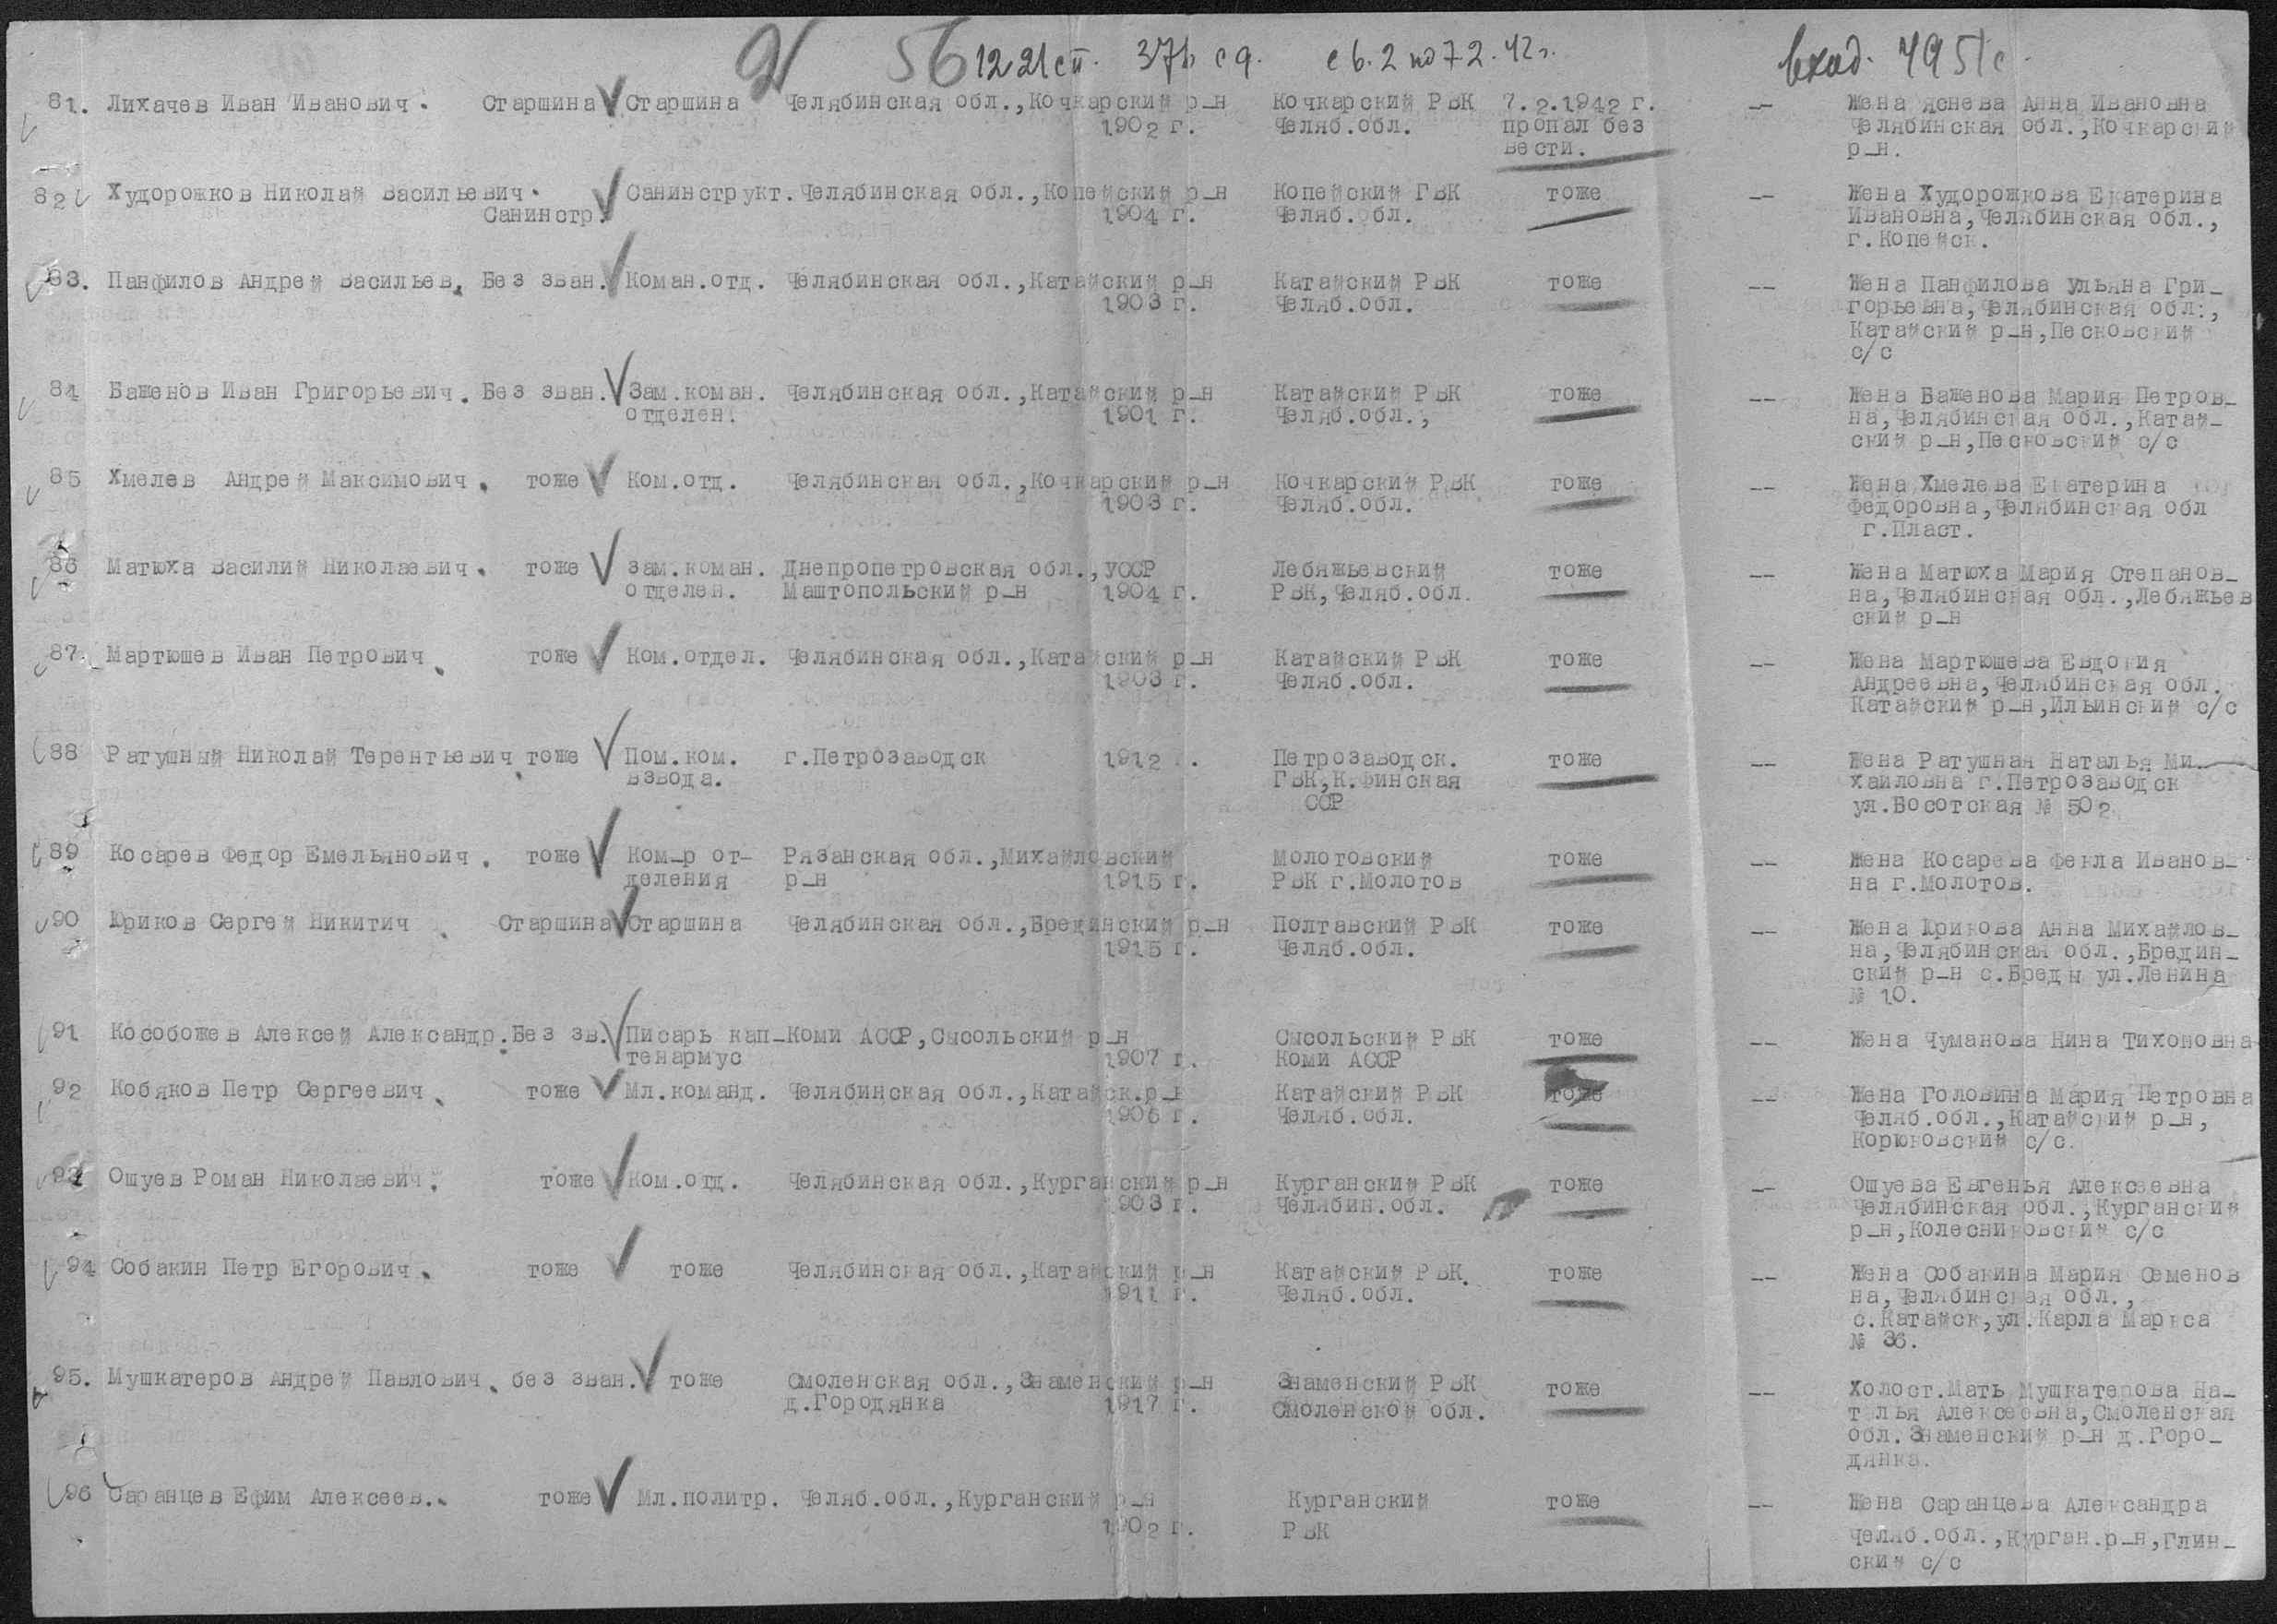 56 1221 сп. 376 сд. с 6.2 по 7.2.42 г. вход. 4951с.
81. Лихачев Иван Иванович. Старшина Старшина Челябинская обл.,Кочкарский р-н Кочкарский РВК 7.2.1942 г. -- Жена Яснева Анна Ивановна
1902 г. Челяб.обл. пропал без Челябинская обл.,Кочкарский
вести. р-н.
82 Худорожков Николай Васильевич. Санинструкт. Челябинская обл.,Копейский р-н Копейский ГВК тоже -- Жена Худорожкова Екатерина
Санинстр. 1904 г. Челяб.обл. Ивановна,Челябинская обл.,
г.Копейск.
83. Панфилов Андрей Васильев. Без зван. Коман.отд. Челябинская обл.,Катайский р-н Катайский РВК тоже -- Жена Панфилова Ульяна Гри-
1903 г. Челяб.обл. горьевна,Челябинская обл.,
Катайский р-н,Песковский
с/с
84 Баженов Иван Григорьевич. Без зван. Зам.коман. Челябинская обл.,Катайский р-н Катайский РВК тоже -- Жена Баженова Мария Петров-
отделен. 1901 г. Челяб.обл., на,Челябинская обл.,Катай-
ский р-н,Песковский с/с
85 Хмелев Андрей Максимович. тоже Ком.отд. Челябинская обл.,Кочкарский р-н Кочкарский РВК тоже -- Жена Хмелева Екатерина
1903 г. Челяб.обл. Федоровна,Челябинская обл
г.Пласт.
86 Матюха Василий Николаевич. тоже Зам.коман. Днепропетровская обл.,УССР Лебяжьевский тоже -- Жена Матюха Мария Степанов-
отделен. Маштопольский р-н 1904 г. РВК,Челяб.обл. на,Челябинская обл.,Лебяжьев
ский р-н
87. Мартюшев Иван Петрович. тоже Ком.отдел. Челябинская обл.,Катайский р-н Катайский РВК тоже -- Жена Мартюшева Евдокия
1903 г. Челяб.обл. Андреевна,Челябинская обл.
Катайский р-н,Ильинский с/с
88 Ратушный Николай Терентьевич. тоже Пом.ком. г.Петрозаводск 1912 г. Петрозаводск. тоже -- Жена Ратушная Наталья Ми-
взвода. ГВК,К.Финская хайловна г.Петрозаводск
ССР ул.Восотская № 502
89 Косарев Федор Емельянович. тоже Ком-р от- Рязанская обл.,Михайловский Молотовский тоже -- Жена Косарева Фекла Иванов-
деления р-н 1915 г. РВК г.Молотов на г.Молотов.
90 Юриков Сергей Никитич. Старшина Старшина Челябинская обл.,Брединский р-н Полтавский РВК тоже -- Жена Юрикова Анна Михайлов-
1915 г. Челяб.обл. на,Челябинская обл.,Бредин-
ский р-н с.Бреды ул.Ленина
№ 10.
91 Кособожев Алексей Александр. Без зв. Писарь кап- Коми АССР,Сысольский р-н Сысольский РВК тоже -- Жена Чуманова Нина Тихоновна
тенармус 1907 г. Коми АССР
92 Кобяков Петр Сергеевич. тоже Мл.команд. Челябинская обл.,Катайск.р-н Катайский РВК тоже -- Жена Головина Мария Петровна
1906 г. Челяб.обл. Челяб.обл.,Катайский р-н,
Корюковский с/с.
93 Ошуев Роман Николаевич. тоже Ком.отд. Челябинская обл.,Курганский р-н Курганский РВК тоже -- Ошуева Евгенья Алексеевна
1903 г. Челябин.обл. Челябинская обл.,Курганский
р-н,Колесниковский с/с
94 Собакин Петр Егорович. тоже тоже Челябинская обл.,Катайский р-н Катайский РВК. тоже -- Жена Собакина Мария Семенов
1911 г. Челяб.обл. на,Челябинская обл.,
с.Катайск,ул.Карла Маркса
№ 36.
95. Мушкатеров Андрей Павлович. без зван. тоже Смоленская обл.,Знаменский р-н Знаменский РВК тоже -- Холост.Мать Мушкатерова На-
д.Городянка 1917 г. Смоленской обл. т лья Алексеевна,Смоленская
обл.Знаменский р-н д.Горо-
дянка.
96 Саранцев Ефим Алексеев.. тоже Мл.политр. Челяб.обл.,Курганский р-н Курганский тоже -- Жена Саранцева Александра
1902 г. РВК Челяб.обл.,Курган.р-н,Глин-
ский с/с